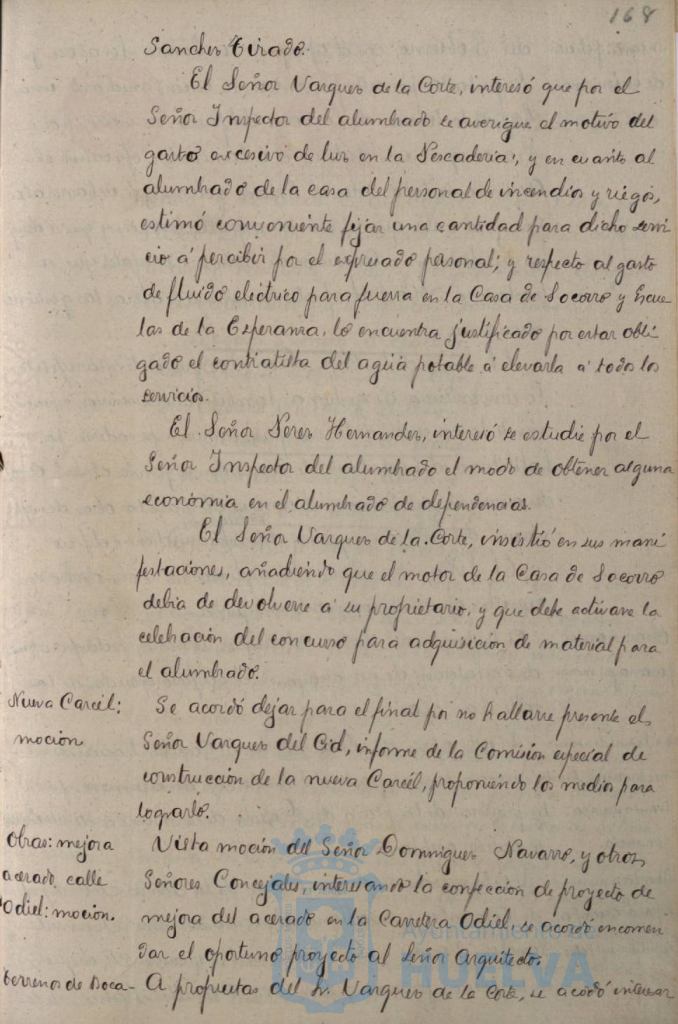 168
Sanchez Tirado.
El Señor Vazquez de la Corte, interesó que por el
Señor Inspector del alumbrado se averigue el motivo del
gasto excesivo de luz en la Pescaderia, y en cuanto al
alumbrado de la casa del personal de incendios y riegos,
estimó conveniente fijar una cantidad para dicho servi
cio á percibir por el expresado personal; y respecto al gasto
de fluido electrico para fuerza en la Casa de Socorro y Escue
las de la Esperanza, lo encuentra justificado por estar obli
gado el contratista del agua potable á elevarla á todos los
servicios.
El Señor Perez Hernandez, interesó se estudie por el
Señor Inspector del alumbrado el modo de obtener alguna
economia en el alumbrado de dependencias.
El Señor Vazquez de la Corte, insistió en sus mani
festaciones, añadiendo que el motor de la Casa de Socorro
debia de devolverse á su propietario, y que debe activarse la
celebración del concurso para adquisicion de material para
el alumbrado.
Nueva Carcel:
moción
Se acordó dejar para el final por no hallarse presente el
Señor Vazquez del Cid, informe de la Comision especial de
construcción de la nueva Carcel, proponiendo los medios para
lograrlo.
Obras: mejora
acerado calle
Odiel: moción.
Vista moción del Señor Dominguez Navarro, y otros
Señores Concejales, interesando la confección de proyecto de
mejora del acerado en la Carretera Odiel, se acordó encomen
dar el oportuno proyecto al Señor Arquitecto.
terrenos de Roca-
A propuestas del Sr. Vazquez de la Corte, se acordó interesar
Ayuntamiento de
HUELVA